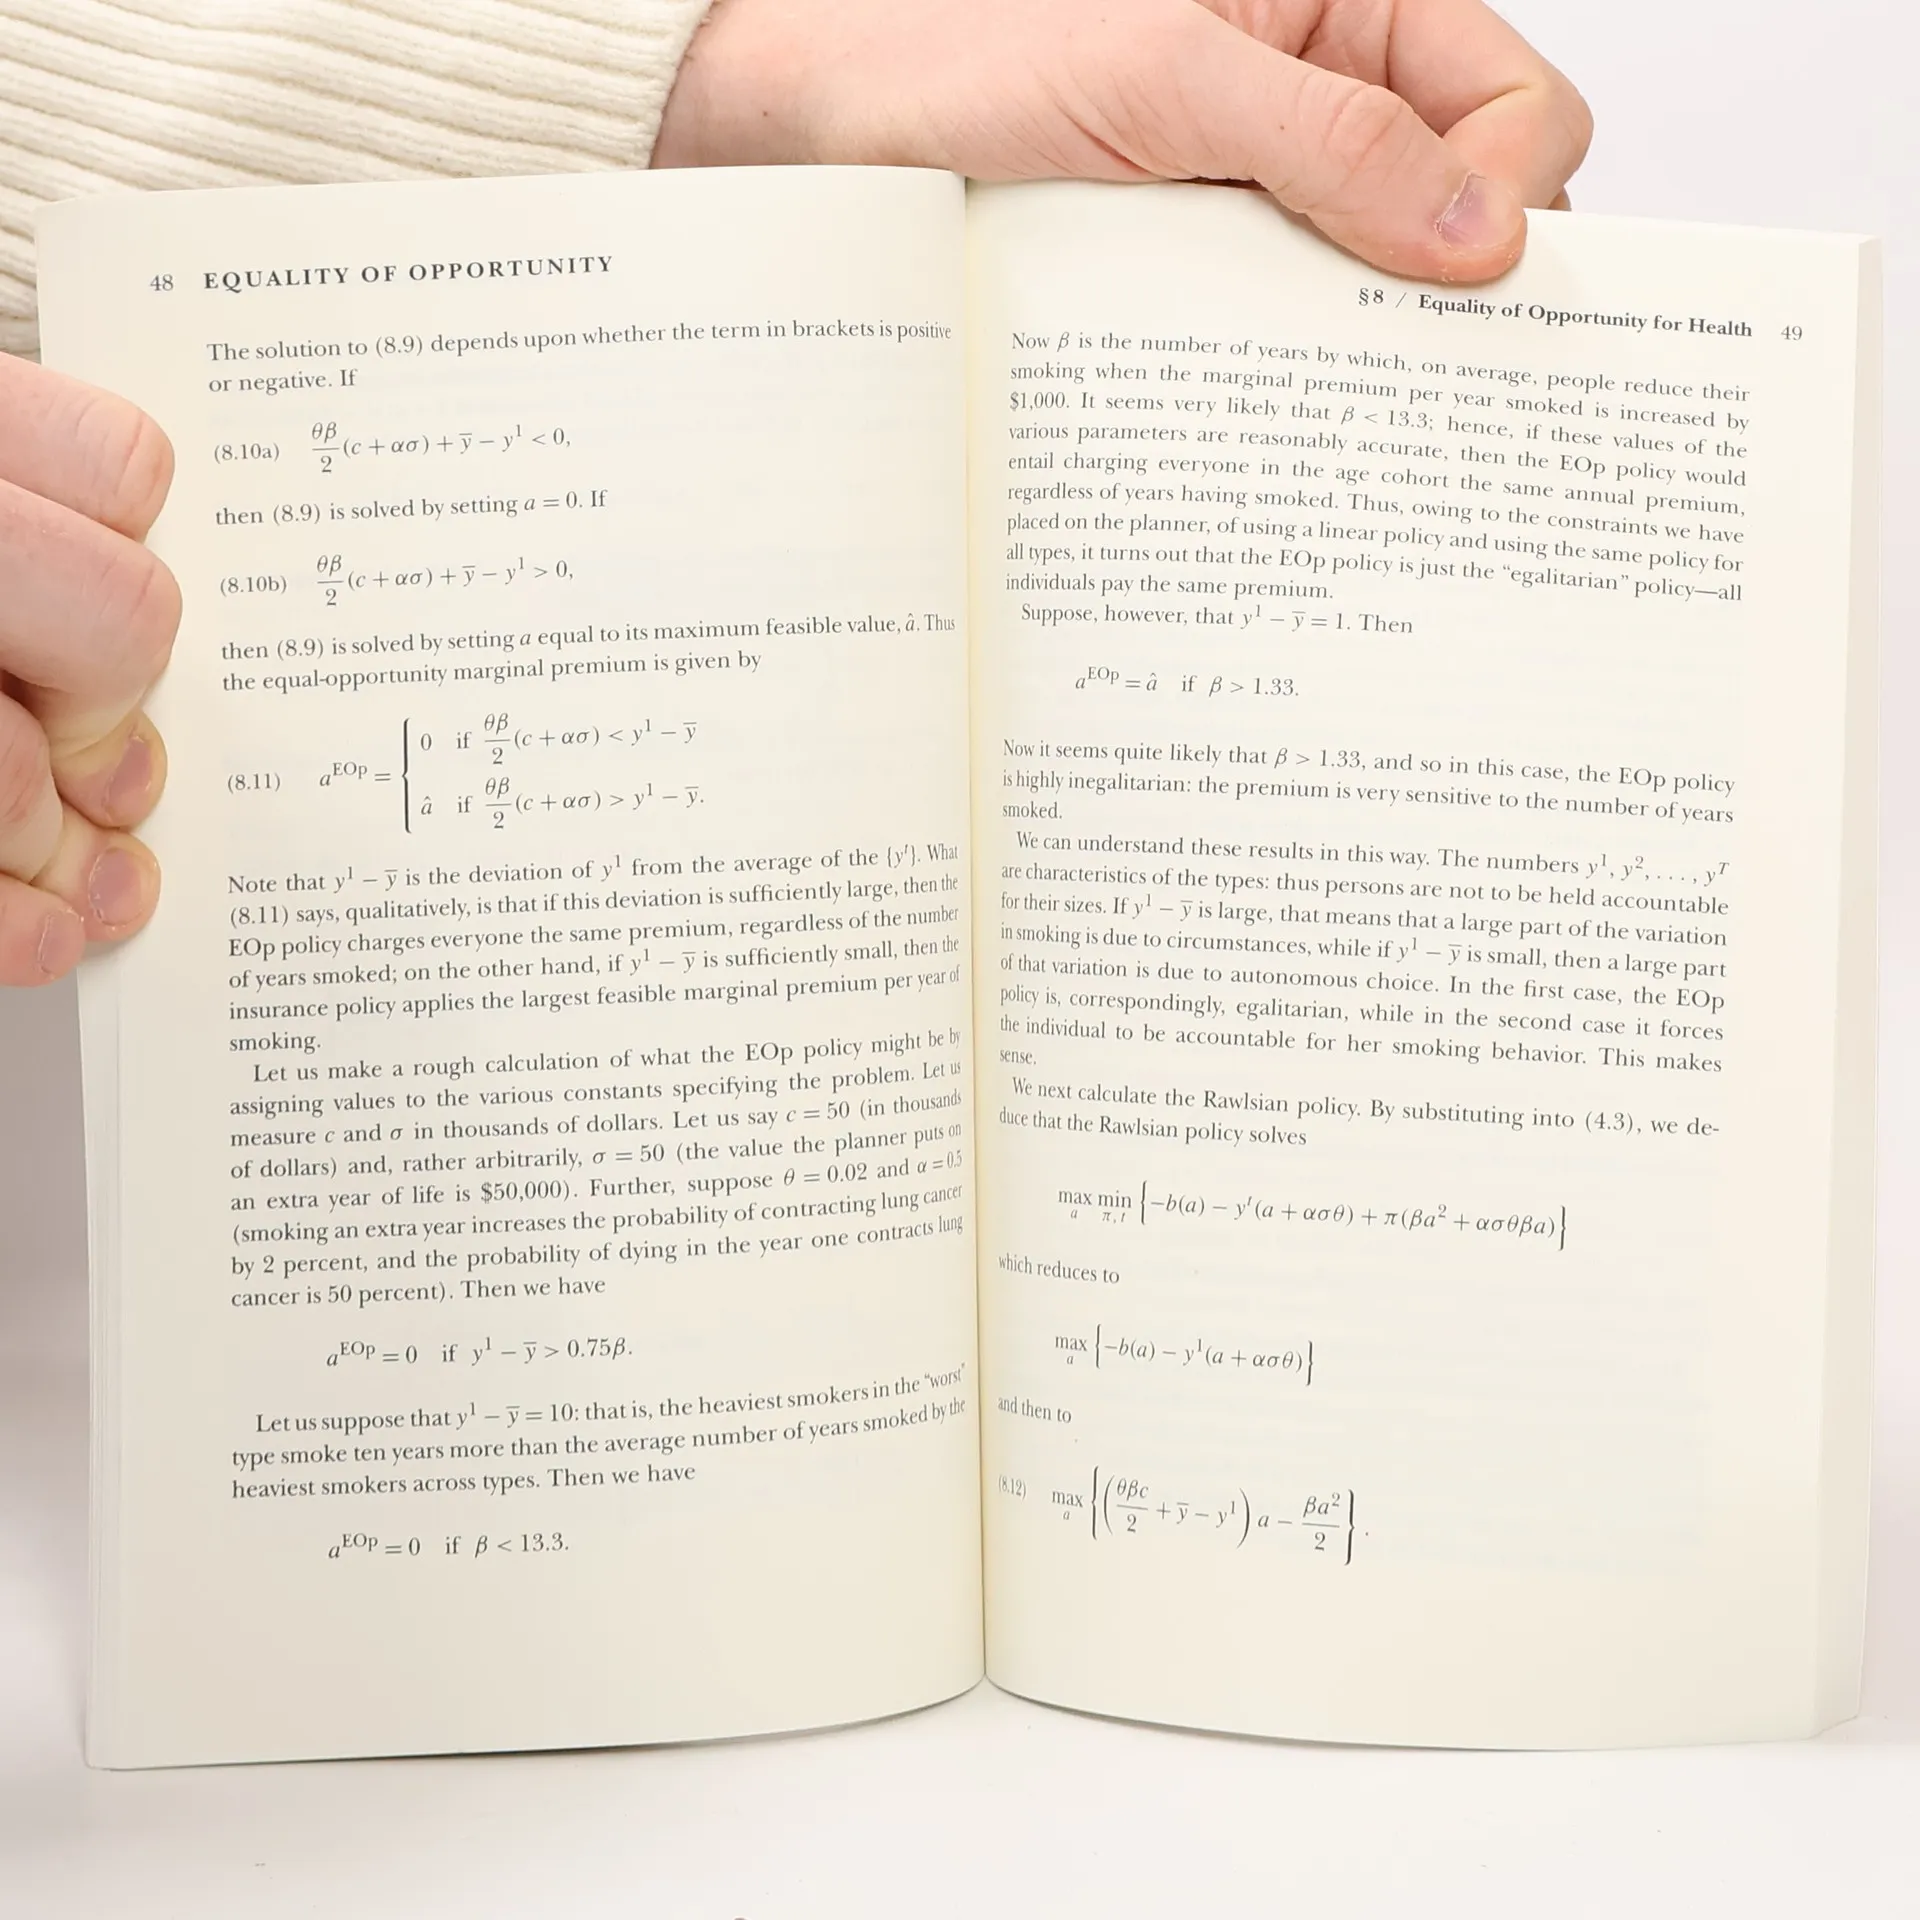 48 EQUALITY OF OPPORTUNITY
The solution to (8.9) depends upon whether the term in brackets is positive
or negative. If
(8.10a) θβ/2 (c + ασ) + y̅ − y¹ < 0,
then (8.9) is solved by setting a = 0. If
(8.10b) θβ/2 (c + ασ) + y̅ − y¹ > 0,
then (8.9) is solved by setting a equal to its maximum feasible value, â. Thus
the equal-opportunity marginal premium is given by
(8.11) a^EOp = { 0 if θβ/2 (c + ασ) < y¹ − y̅
â if θβ/2 (c + ασ) > y¹ − y̅.
Note that y¹ − y̅ is the deviation of y¹ from the average of the {yᵗ}. What
(8.11) says, qualitatively, is that if this deviation is sufficiently large, then the
EOp policy charges everyone the same premium, regardless of the number
of years smoked; on the other hand, if y¹ − y̅ is sufficiently small, then the
insurance policy applies the largest feasible marginal premium per year of
smoking.
Let us make a rough calculation of what the EOp policy might be by
assigning values to the various constants specifying the problem. Let us
measure c and σ in thousands of dollars. Let us say c = 50 (in thousands
of dollars) and, rather arbitrarily, σ = 50 (the value the planner puts on
an extra year of life is $50,000). Further, suppose θ = 0.02 and α = 0.5
(smoking an extra year increases the probability of contracting lung cancer
by 2 percent, and the probability of dying in the year one contracts lung
cancer is 50 percent). Then we have
a^EOp = 0 if y¹ − y̅ > 0.75β.
Let us suppose that y¹ − y̅ = 10: that is, the heaviest smokers in the “worst”
type smoke ten years more than the average number of years smoked by the
heaviest smokers across types. Then we have
a^EOp = 0 if β < 13.3.
§8 / Equality of Opportunity for Health 49
Now β is the number of years by which, on average, people reduce their
smoking when the marginal premium per year smoked is increased by
$1,000. It seems very likely that β < 13.3; hence, if these values of the
various parameters are reasonably accurate, then the EOp policy would
entail charging everyone in the age cohort the same annual premium,
regardless of years having smoked. Thus, owing to the constraints we have
placed on the planner, of using a linear policy and using the same policy for
all types, it turns out that the EOp policy is just the “egalitarian” policy—all
individuals pay the same premium.
Suppose, however, that y¹ − y̅ = 1. Then
a^EOp = â if β > 1.33.
Now it seems quite likely that β > 1.33, and so in this case, the EOp policy
is highly inegalitarian: the premium is very sensitive to the number of years
smoked.
We can understand these results in this way. The numbers y¹, y², . . . , yᵀ
are characteristics of the types: thus persons are not to be held accountable
for their sizes. If y¹ − y̅ is large, that means that a large part of the variation
in smoking is due to circumstances, while if y¹ − y̅ is small, then a large part
of that variation is due to autonomous choice. In the first case, the EOp
policy is, correspondingly, egalitarian, while in the second case it forces
the individual to be accountable for her smoking behavior. This makes
sense.
We next calculate the Rawlsian policy. By substituting into (4.3), we de-
duce that the Rawlsian policy solves
max_a min_π,t {−b(a) − yᵗ(a + ασθ) + π(βa² + ασθβa)}
which reduces to
max_a {−b(a) − y¹(a + ασθ)}
and then to
(8.12) max_a {(θβc/2 + y̅ − y¹) a − βa²/2}.